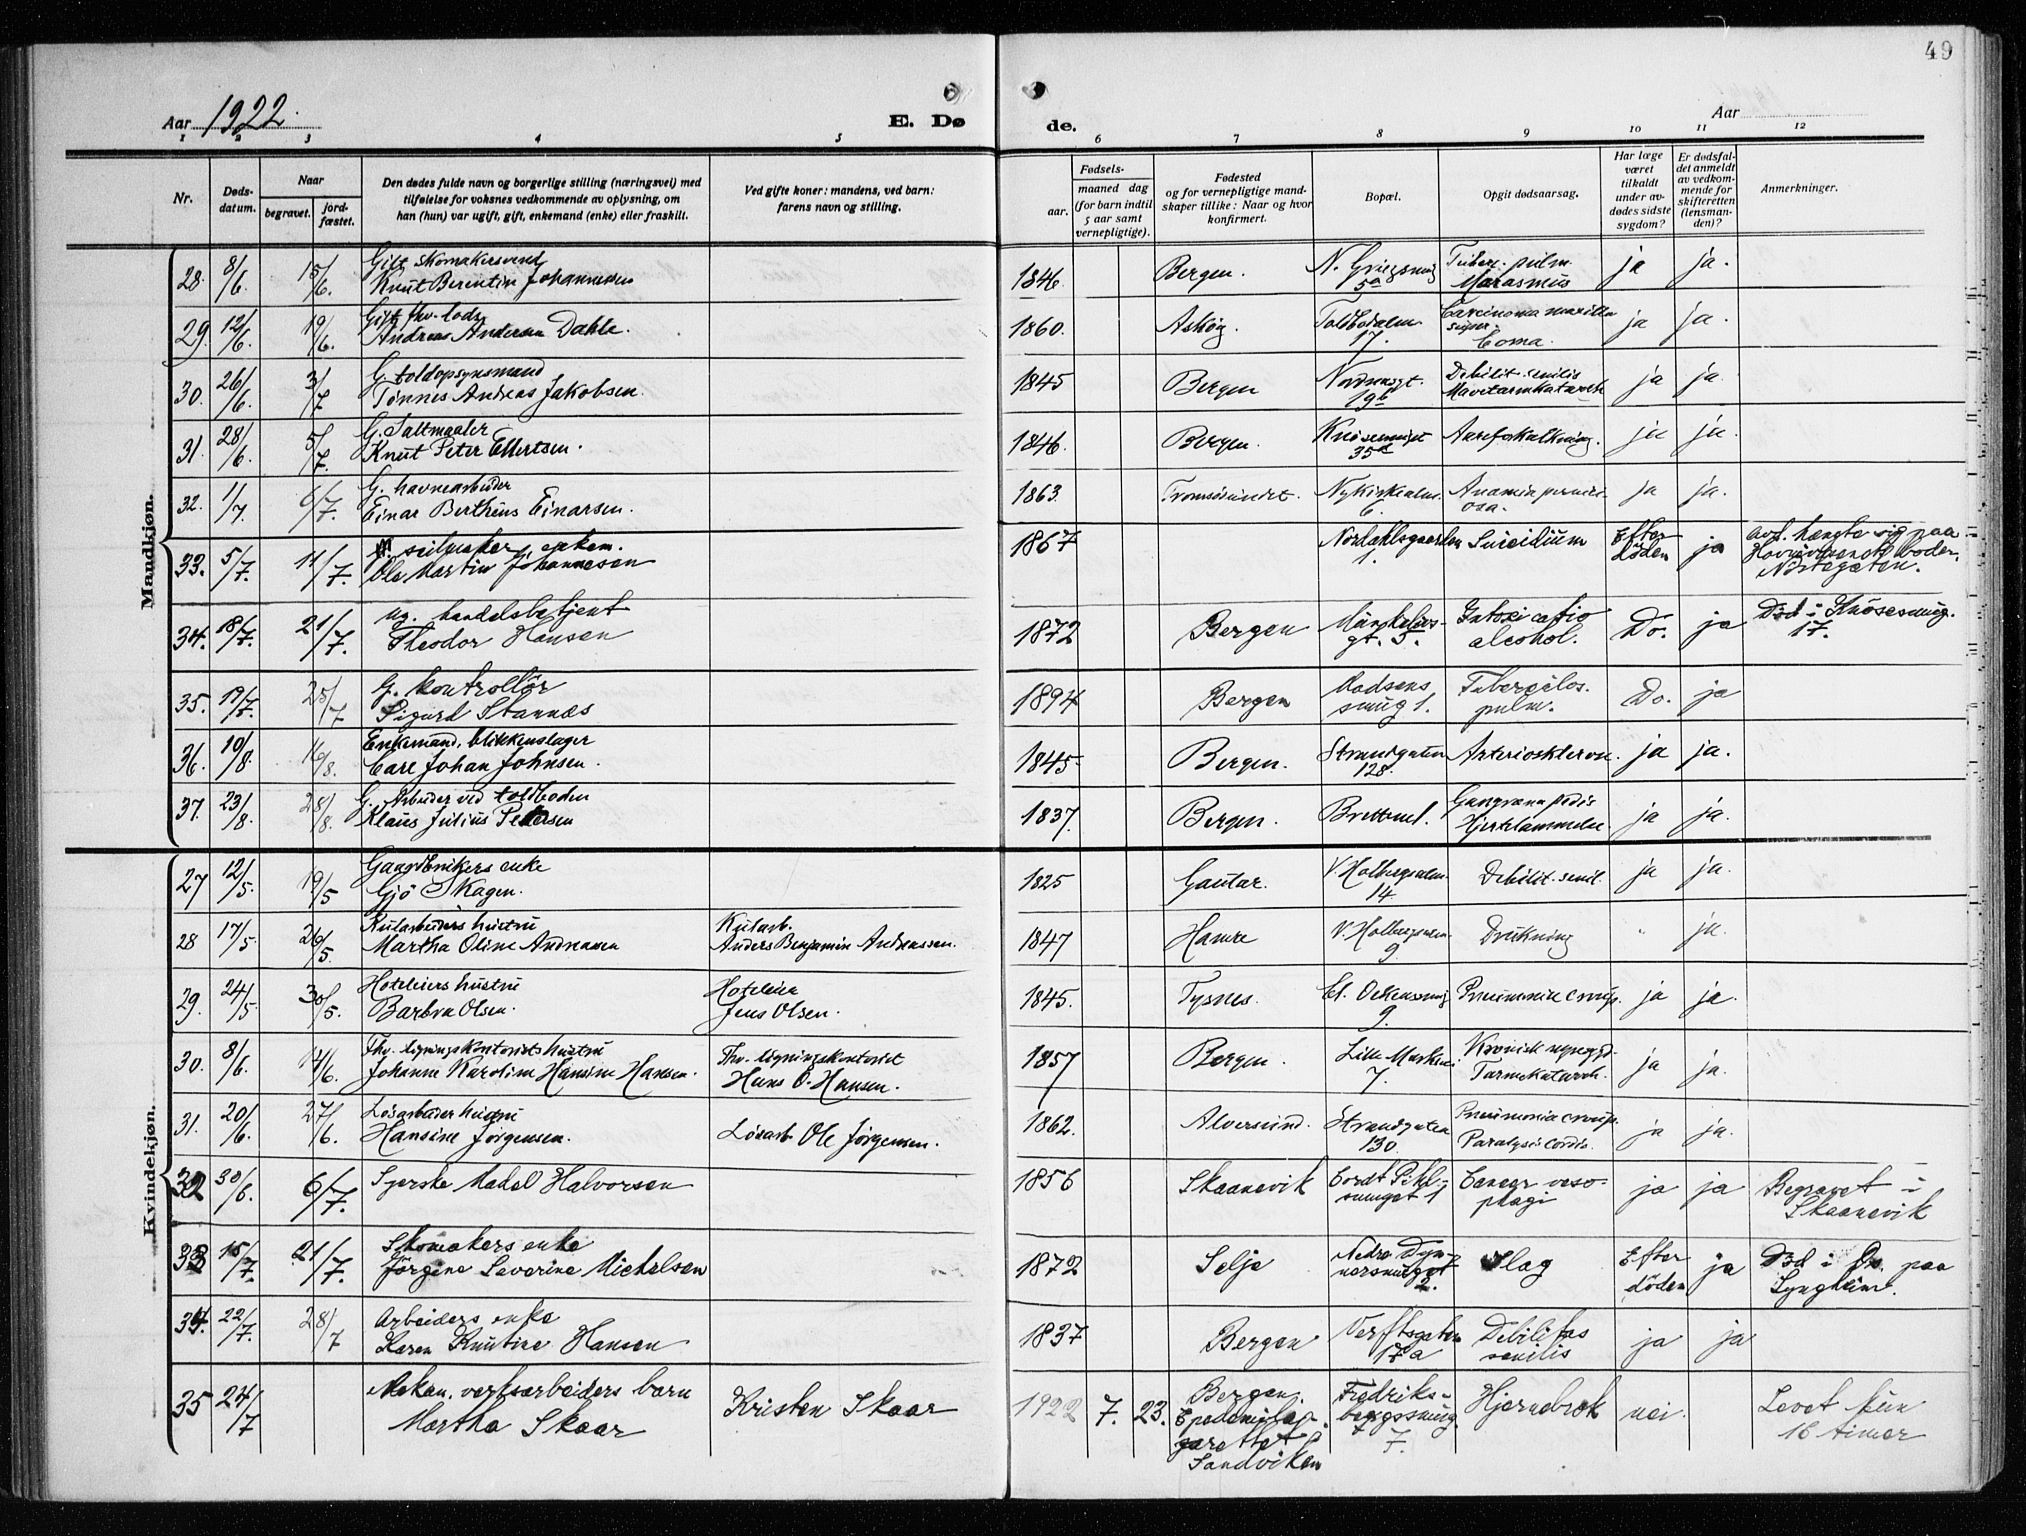 49
Aar 1922.
E. Døde.
Aar
1 2 3 4 5 6 7 8 9 10 11 12
Nr.
Døds-
datum.
Naar
begravet.
jord-
fæstet.
Den dødes fulde navn og borgerlige stilling (næringsvei) med
tilføielse for voksnes vedkommende av oplysning, om
han (hun) var ugift, gift, enkemand (enke) eller fraskilt.
Ved gifte koner: mandens, ved barn:
farens navn og stilling.
Fødsels-
aar.
maaned dag
(for barn indtil
5 aar samt
vernepligtige).
Fødested
og for vernepligtige mand-
skaper tillike: Naar og hvor
konfirmert.
Bopæl.
Opgit dødsaarsag.
Har læge
været
tilkaldt
under av-
dødes sidste
sygdom?
Er dødsfal-
det anmeldt
av vedkom-
mende for
skifteretten
(lensman-
den)?
Anmerkninger.
Mandkjøn.
Gift skomakersvend
28. 8/6 15/6. Knut Berentin Johannesen 1846. Bergen. N. Griegsmug 5a Tuberc. pulm. Marasmus ja ja.
Gift fhv. lods
29. 12/6. 19/6. Andreas Andersen Dahle. 1860. Askøy. Toldbodalm. 17. Carcinoma maxilla super. Coma. ja ja.
G. toldopsynsmand
30. 26/6. 3/7 Tønnes Andreas Jakobsen. 1845 Bergen Nordnæsgt. 19b Debilit. senilis Mavetarmkatarrh ja ja.
G. Saltmaaler
31. 28/6. 5/7. Knut Peter Ellertsen. 1846. Bergen. Knøsesmuget 35a Aareforkalkning. ja ja.
G. havnearbeider
32. 1/7. 6/7. Einar Bertheus Einarsen. 1863. Tromsøsundet. Nykirkealm. 6. Anæmia pernici- osa. ja ja.
seilmaker, enkem.
33. 5/7. 11/7. Ole Martin Johannesen 1867 Nordahlsgaarden 1. Suicidium Efter døden ja avd. hængte sig paa
boder. Nøstegaten.
ug. handelsbetjent
34. 18/7. 21/7. Theodor Hansen 1872 Bergen Munkeliws- gt. 5. Intoxicatio alcohol. Do. ja Død i Knøsesmug. 17.
G. kontrollør
35. 19/7. 25/7 Sigurd Stannes 1894 Bergen Madsens smug 1. Tuberculos. pulm. Do. ja
Enkemand, blikkenslager
36. 10/8. 16/8. Carl Johan Johnsen. 1845 Bergen. Strandgaten 128. Arterioskleros. ja ja.
G. Arbeider ved toldboden
37. 23/8. 28/8. Klaus Julius Petersen 1837. Bergen. Gangræna pedis Hjertelammelse ja ja.
Kvindekjøn.
Gaardbrukers enke
27 12/5. 19/5 Gjø Skagen. 1825 Gautar. V. Holbergsalm. 14. Debilit. senil. ja ja.
Kularbeiders hustru Kularb.
28 17/5. 26/5. Martha Oline Andreasen Anders Benjamin Andreassen. 1847 Hamre V. Holbergsalm. 9. Drukning " ja.
Hoteleiers hustru Hoteleier
29. 24/5. 30/5. Barbra Olsen. Jens Olsen. 1845. Tysnes. Cl. Ockensmug 9. Pneumonia croup. ja ja.
Fhv. ligningskontorists hustru Fhv. ligningskontorist
30. 8/6. 14/6. Johanne Karoline Hansine Hansen. Hans O. Hansen. 1857 Bergen. Lille Marken 7. Kronisk Tarmkatarrh. ja ja.
Løsarbeiders hustru
31. 20/6. 27/6. Hansine Jørgensen. Løsarb Ole Jørgensen. 1862. Alversund. Strandgaten 130. Pneumonia croup. Paralysis cordis. ja ja.
32 30/6. 6/7. Syerske Madel Halvorsen 1856 Skaanevik Cordt Pihl- smuget 1 Cancer oeso- phagi ja ja Begravet i Skaanevik
Skomakers enke
33 15/7. 21/7. Jørgine Severine Michelsen 1872 Selje Nedre Dyn- nersmuget 2. Slag Efter døden ja Død i paa Lyngheim.
Arbeiders enke
34. 22/7. 28/7 Karen Knutine Hansen 1837 Bergen Verftsgaten 17a Debilitas senilis ja ja
Mekan. verksarbeiders barn
35 24/7 Martha Skaar Kristen Skaar 1922 7. 23. Bergen. Sandviken Fredriks- bergssmug 7. Hjernebrok nei. Levet kun 16 timer